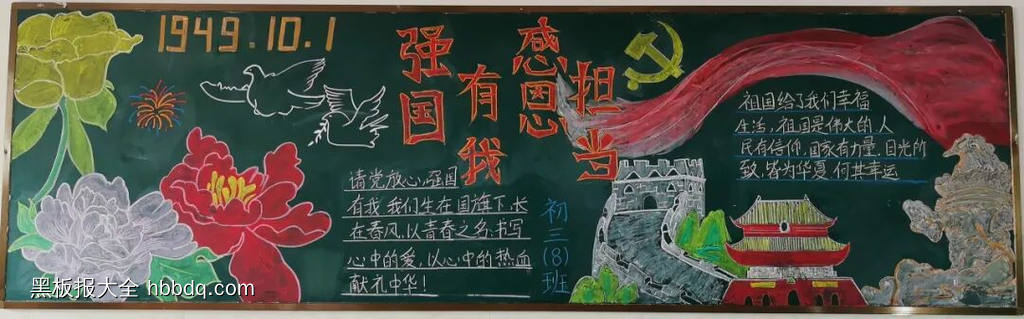 1949.10.1
强国
有我
感恩
担当
请党放心,强国
有我 我们生在国旗下,长
在春风,以青春之名,书写
心中的爱,以心中的热血
献礼中华!
初三(8)班
祖国给了我们幸福
生活,祖国是伟大的,人
民有信仰,国家有力量,目光所
致,皆为华夏,何其幸运
黑板报大全 hbbdq.com